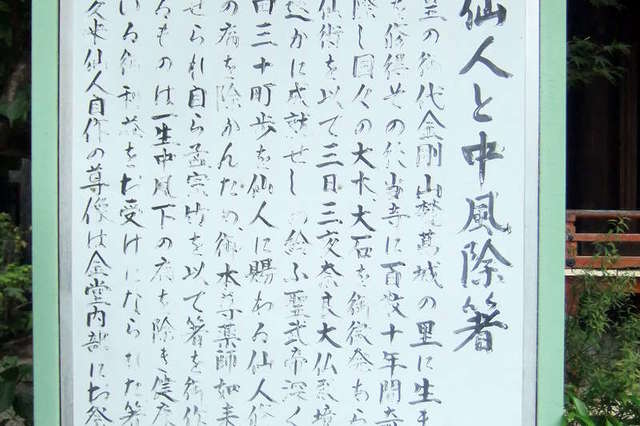 仙人と中風除箸
の御代金剛山麓葛城の里に生
修得その後当寺に百数十年間
除し国々の大木、大石を御徴発あら
仙術を以て三日三夜奈良大仏殿境
かに成就せし給ふ聖武帝深く
田三十町歩を仙人に賜わる仙人
の病を除かんため、御本尊薬師如来
せられ自ら孟宗竹を以て箸を御作
るものは一生中風下の病を除き健康
いる御利益をお受けになられた箸
久米仙人自作の尊像は金堂内部にお祭